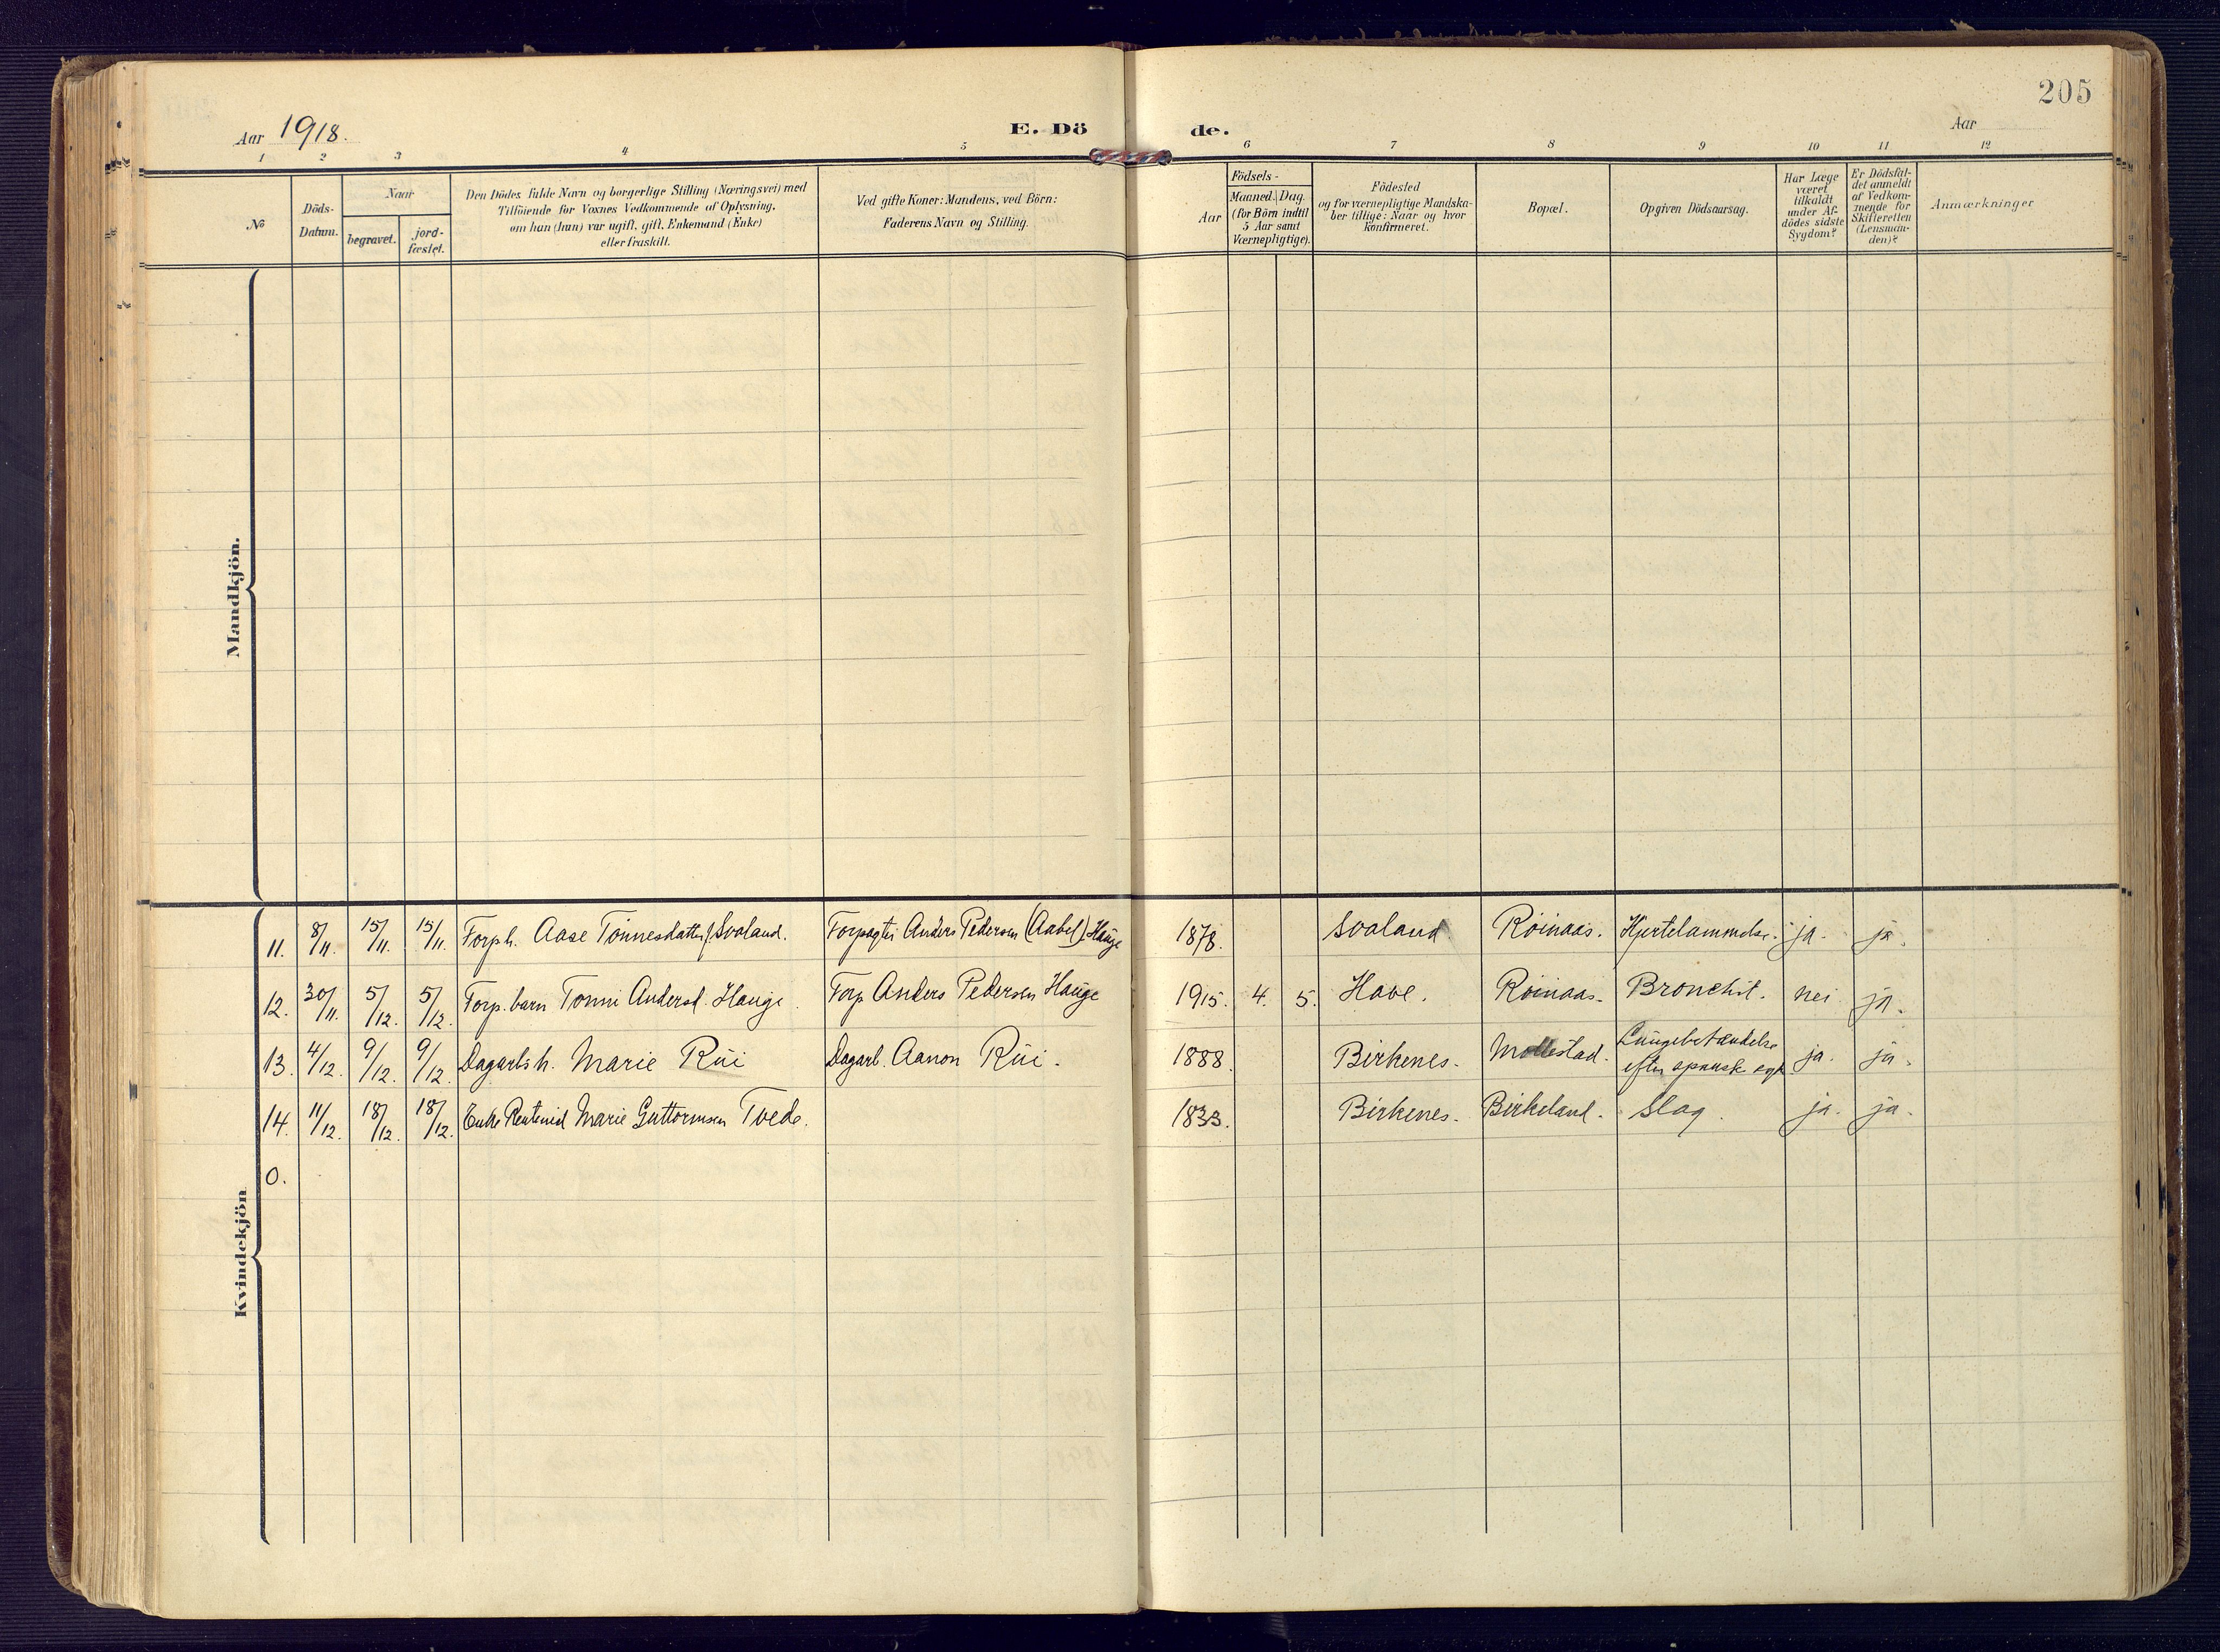 205
Aar 1918.
E. Dö
de.
Aar
1 2 3 4 5 6 7 8 9 10 11 12
No
Döds-
Datum.
Naar
begravet.
jord-
fæstet.
Den Dödes fulde Navn og borgerlige Stilling (Næringsvei) med
Tilföiende for Voxnes Vedkommende af Oplysning,
om han (hun) var ugift, gift, Enkemand (Enke)
eller fraskilt.
Ved gifte Koner: Mandens, ved Börn:
Faderens Navn og Stilling.
Födsels-
Aar
Maaned. Dag.
(for Börn indtil
5 Aar samt
Værnepligtige).
Födested
og for værnepligtige Mandska-
ber tillige: Naar og hvor
konfirmeret.
Bopæl.
Opgiven Dödsaarsag.
Har Læge
været
tilkaldt
under Af-
dödes sidste
Sygdom?
Er Dödsfal-
det anmeldt
af Vedkom-
mende for
Skifteretten
(Lensman-
den)?
Anmærkninger
Mandkjön.
Kvindekjön
11. 8/11. 15/11. 15/11. Forph. Aase Tønnesdatter Svaland. Forpagter Anders Pedersen (Aabel) Hauge 1878. Svaland. Röinaas. Hjertelammelse. ja. ja.
12. 30/11. 5/12. 5/12. Forp. barn Tonni Andersd. Hauge. Forp Anders Pedersen Hauge 1915. 4. 5. Have. Röinaas. Bronchit. nei ja.
13. 4/12. 9/12. 9/12. Dagarbsh. Marie Rui Dagarb. Aanon Rui. 1888. Birkenes. Mollestad. Lungebetændelse
efter spansk syk ja. ja.
14. 11/12. 18/12. 18/12. Enke Marie Guttormsen Tvede. 1833. Birkenes. Birkeland. Slag. ja. ja.
0.